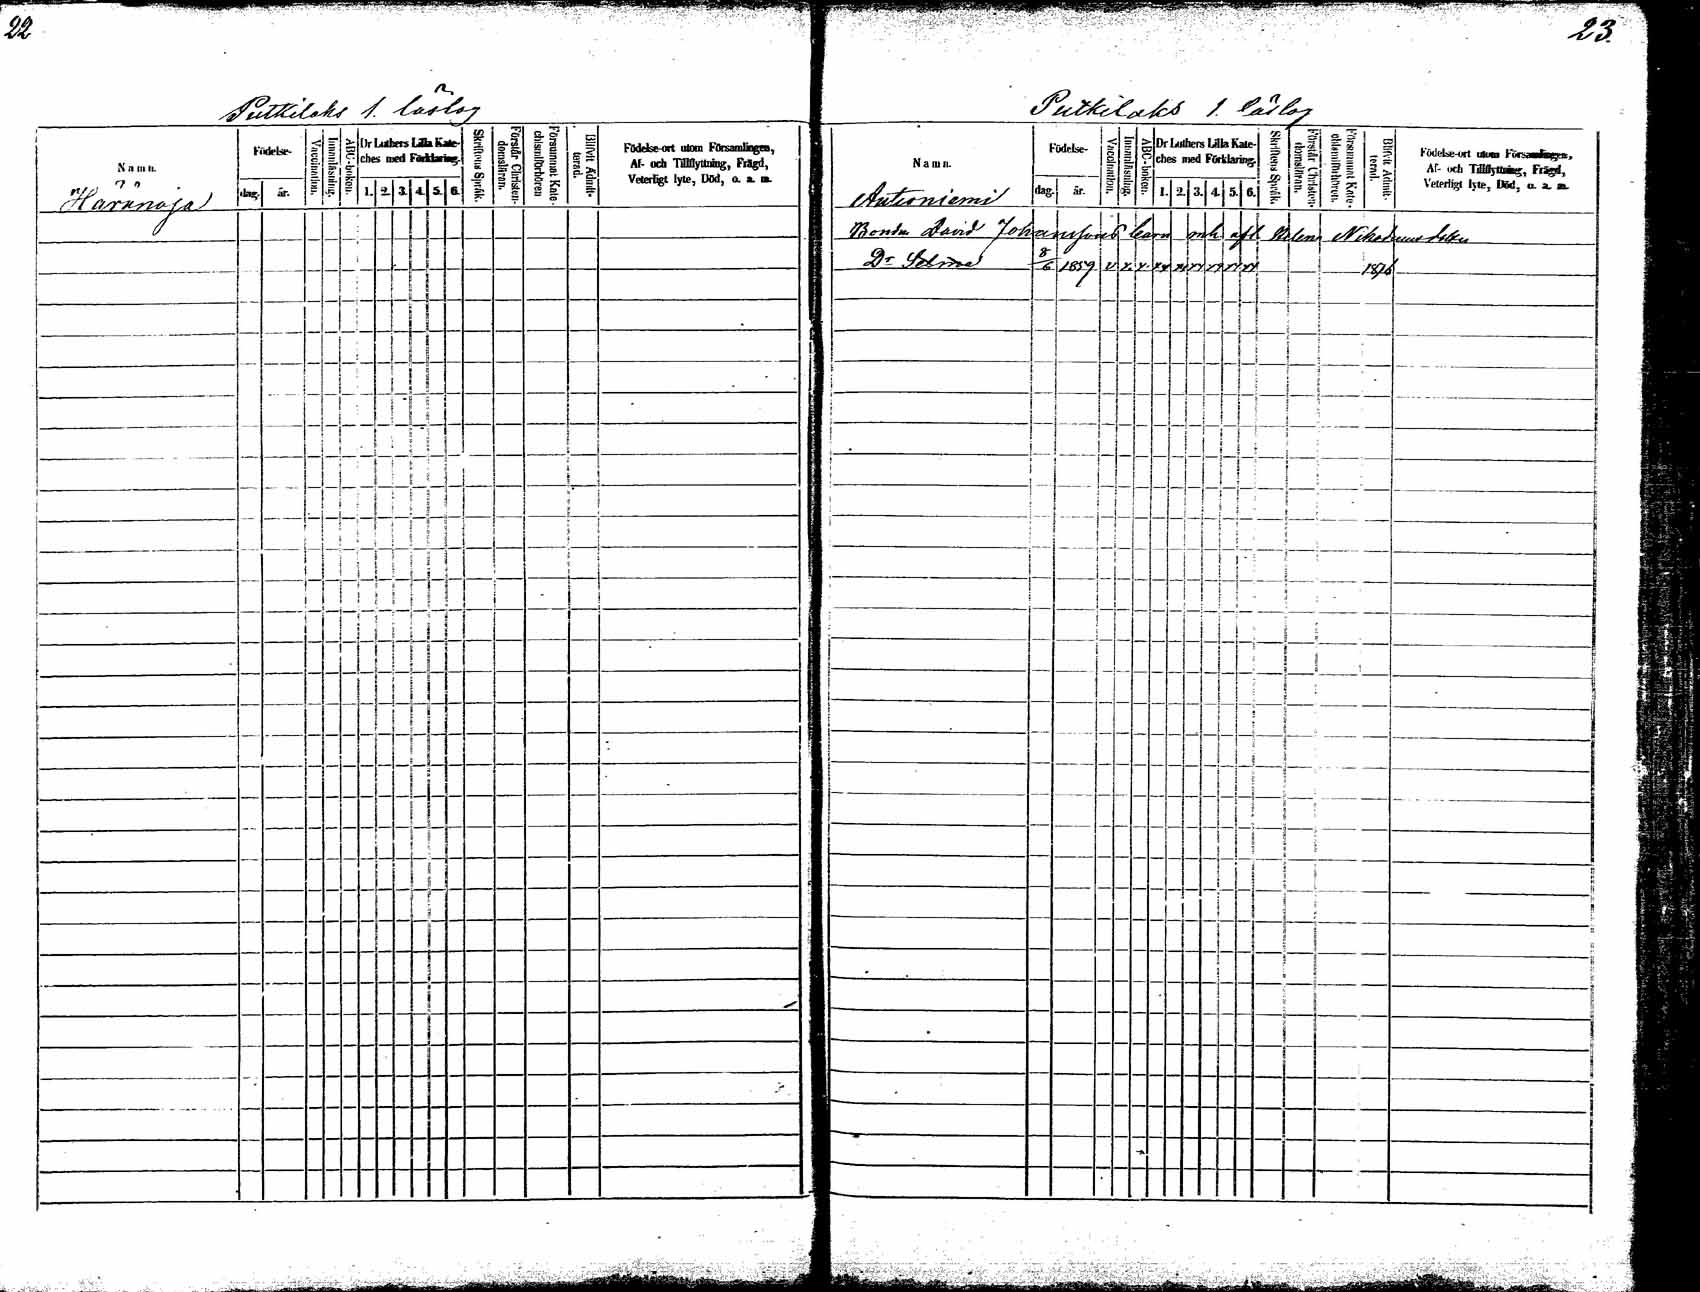 22
Putkilaks 1. läslag
Namn.
Födelse-
dag.
år.
Vaccination.
Innanläsning.
ABC-boken.
Dr Luthers Lilla Kate-
ches med Förklaring.
1. 2. 3. 4. 5. 6.
Skriftens Språk.
Förstår Christen-
domsläran.
Försummat Kate-
chismiförhören
Blifvit Admit-
terad.
Födelse-ort utom Församlingen,
Af- och Tillflyttning, Frägd,
Veterligt lyte, Död, o. a. m.
Haranoja
23.
Putkilaks 1. läslag
Namn.
Födelse-
dag.
år.
Vaccination.
Innanläsning.
ABC-boken.
Dr Luthers Lilla Kate-
ches med Förklaring.
1. 2. 3. 4. 5. 6.
Skriftens Språk.
Förstår Christen-
domsläran.
Försummat Kate-
chismiförhören.
Blifvit Admit-
terad.
Födelse-ort utom Församlingen,
Af- och Tillflyttning, Frägd,
Veterligt lyte, Död, o. a. m.
Antioniemi
Bonden David Johanssons barn m. h. afl. Helena
Dr Selma 8/6 1859 1876